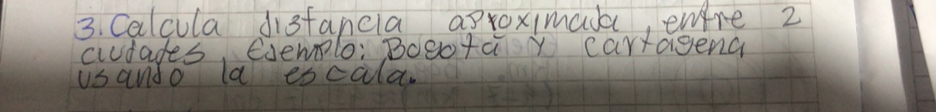 3. Calcula distancia aproximada, entre 2
ciudades, Ejemplo: Bogotá y cartagena
usando la escala.